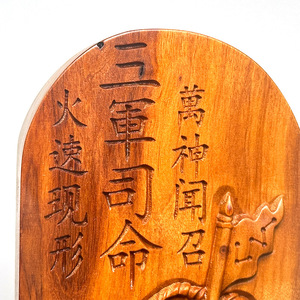 萬神聞召
三軍司命
火速现形